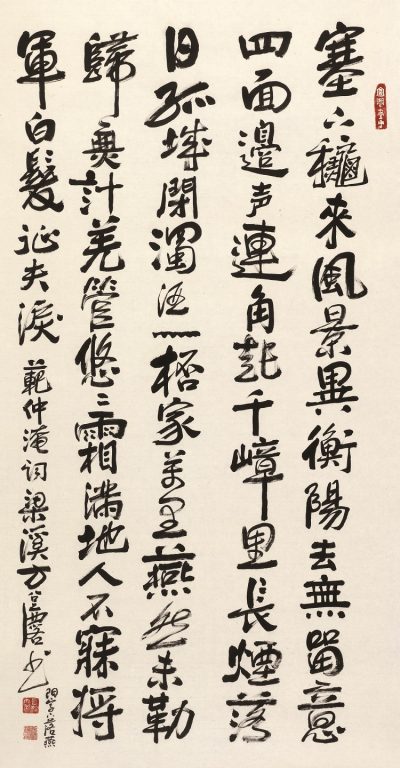 塞下龝來風景異衡陽去無留意
四面邊声連角起千嶂里長煙落
日孤城閉濁酒一桮家萬里燕然未勒
歸無計羌管悠〻霜滿地人不寐將
軍白髮征夫淚 範仲淹词梁溪方書
陽字下落燕